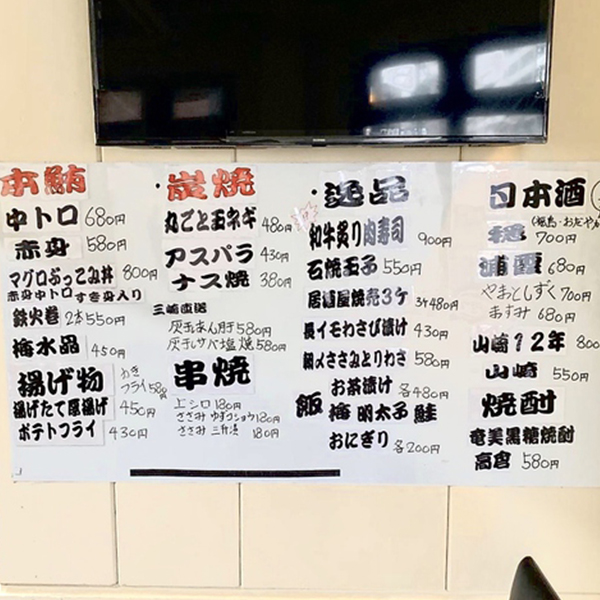 本鮪
中トロ 680円
赤身 580円
マグロぶっこみ丼 800円
赤身中トロすき身入り
鉄火巻 2本550円
梅水晶 450円
揚げ物
かき
フライ 580
揚げたて厚揚げ 450円
ポテトフライ 430円
・炭焼
丸ごと玉ネギ 480円
アスパラ 430円
ナス焼 380円
三崎直送
灰干あん肝 580円
灰干しサバ塩焼 580円
串焼
上シロ 180円
ささみ ゆずコショウ 180円
ささみ 180円
・逸品
和牛炙り肉寿司 900円
石焼玉子 550円
居酒屋焼売3ケ 3ケ480円
長イモわさび漬け 430円
〆ささみとりわさ 580円
飯
お茶漬け 各480円
梅 明太子 鮭
おにぎり 各200円
日本酒
穏 700円
浦霞 680円
やまとしずく 700円
あすみ 680円
山崎12年 800
山崎 550円
焼酎
奄美黒糖焼酎
高倉 580円